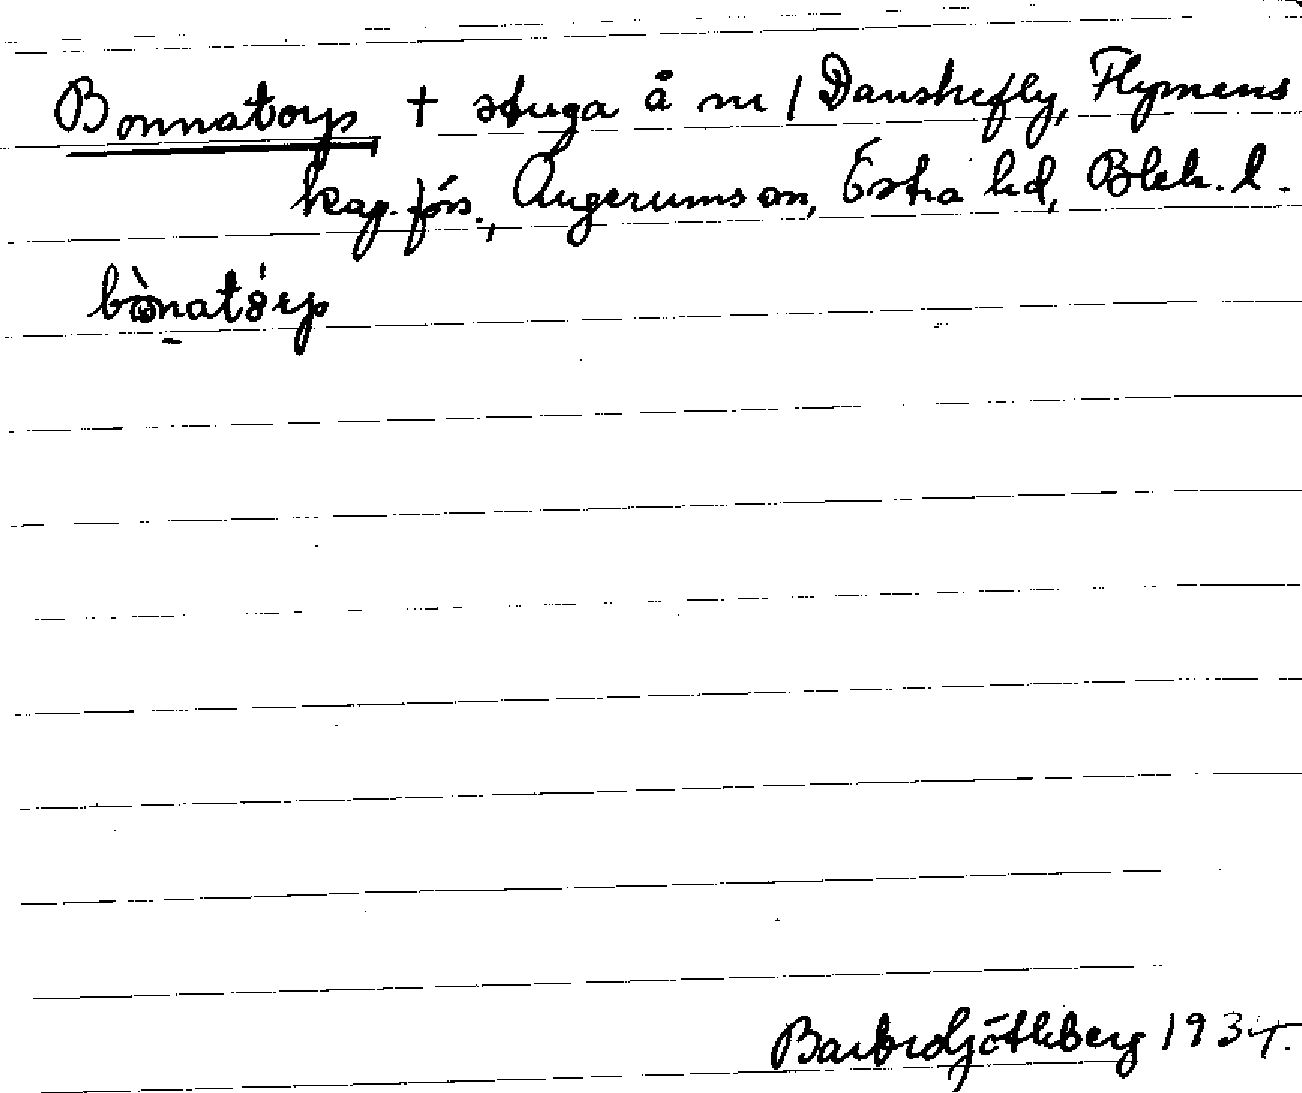 Bonnatorp † stuga å nr 1 Danskefly, Flymens
kap. förs., Augerums sn, Östra hd, Blek. l.
bònatórp
Barbro Götheberg 1934.